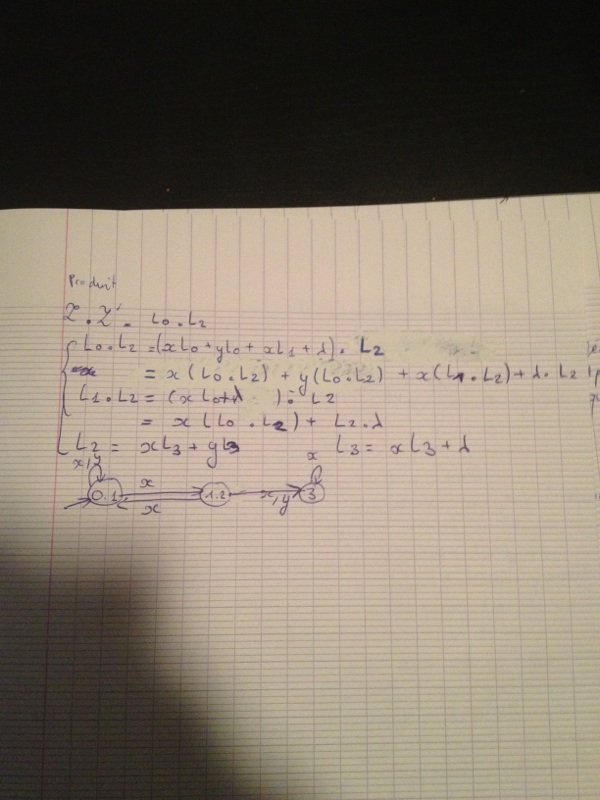 Produit
Z.Z'. L0.L2
L0.L2 = (xL0 + yL0 + xL1 + λ). L2
= x(L0.L2) + y(L0.L2) + x(L1.L2) + λ.L2
L1.L2 = (xL0+λ ). L2
= x(L0.L2) + L2.λ
L2 = xL3 + yL3 L3 = xL3 + λ
x,y x x
0.1 1.2 x,y 3
x